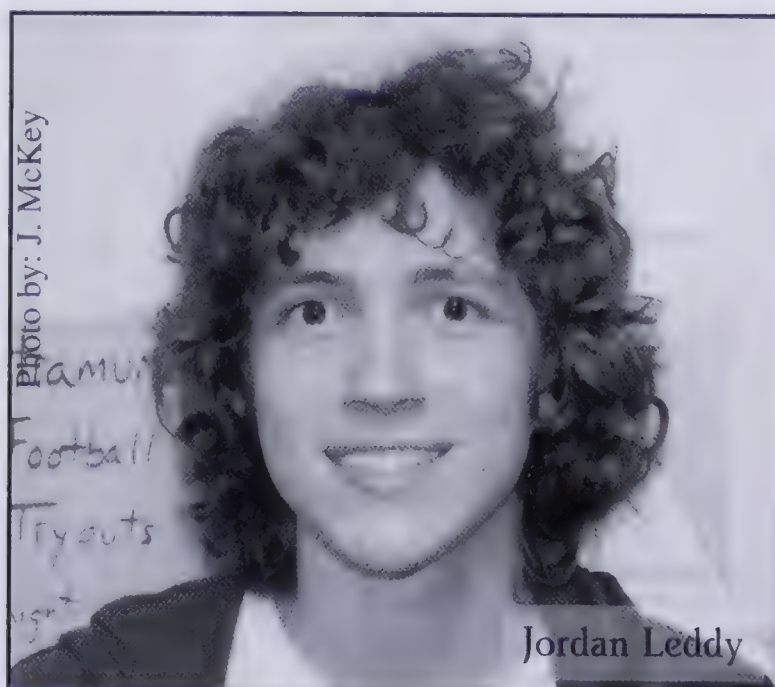 Photo by: J. McKey
Football
Tryouts
Jordan Leddy